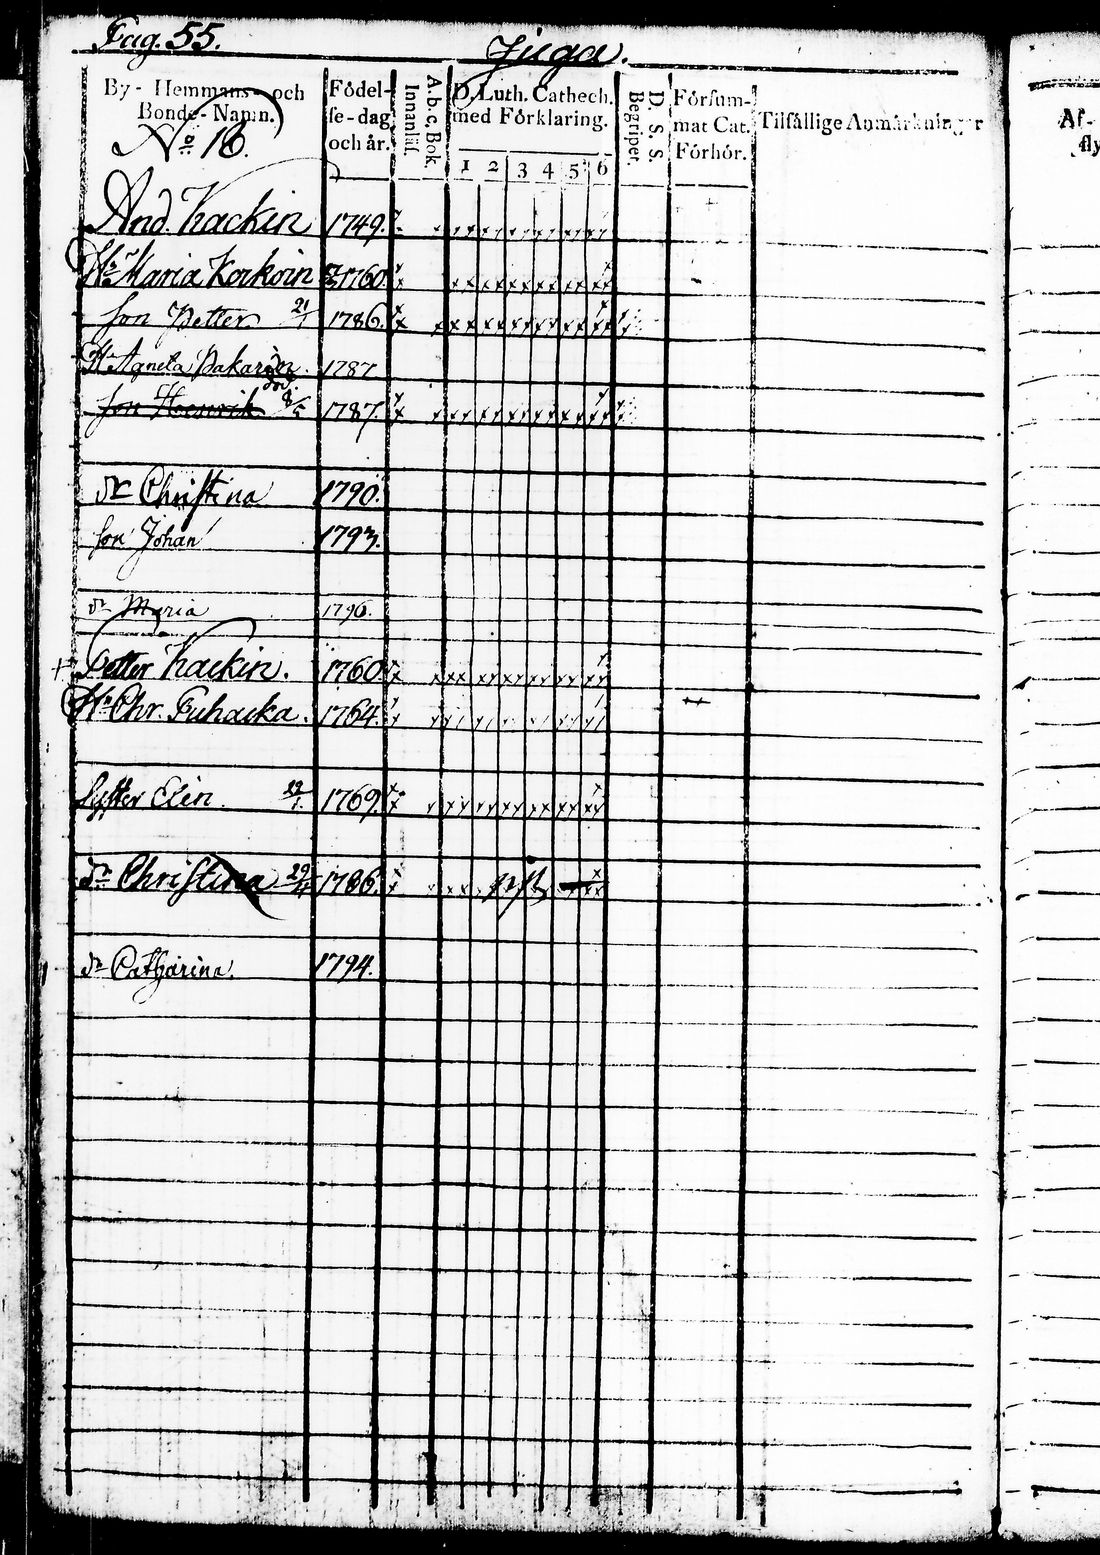 Pag. 55.
Juga.
By- Hemmans- och
Bonde-Namn.
No 18.
Födel-
se-dag
och år.
Innanläs.
A.b.c, Bok.
D. Luth. Cathech.
med Förklaring.
1 2 3 4 5 6
Begriper.
D. S. S.
Försum-
mat Cat.
Förhör.
Tilfällige Anmärkningar
Af-
fly
And. Hackin 1749.
Hu Maria Korkoin 1760.
son Petter 21/1 1786.
Hu Agneta Pakarin 1787
son Henrik 8/5 1787.
dr Christina 1790.
son Johan 1793.
dr Maria 1796.
+ Petter Hackin. 1760
Hu Chr. Fuhacka. 1764.
syster Elin 1769.
dr Christina 1786.
dr Catharina. 1794.